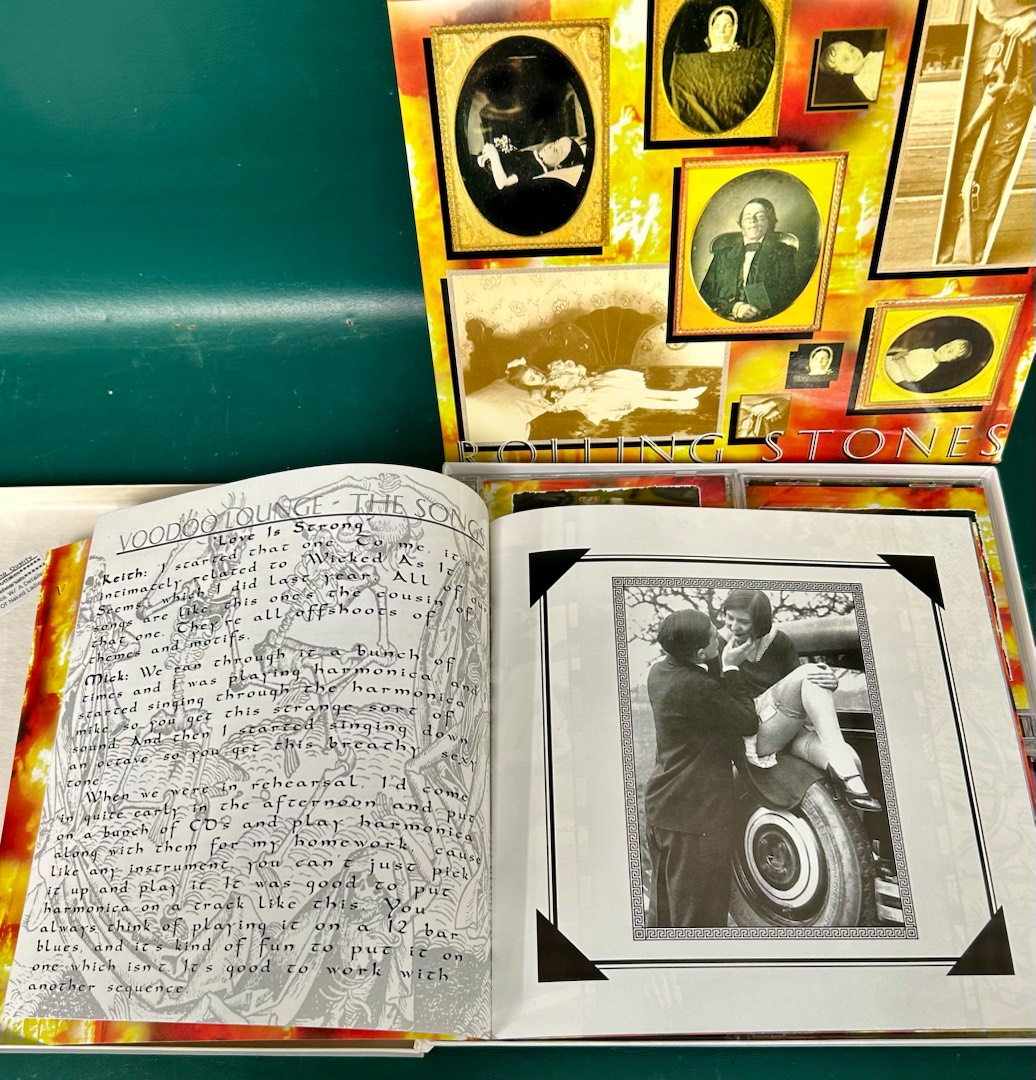 ROLLING STONES
VOODOO LOUNGE - THE SONG
"Love Is Strong"
Keith: I started that one. To me, it's
intimately related to Wicked As It
Seems, which I did last year. All of our
songs are like this one's the cousin of
that one. They're all offshoots of
themes and motifs.
Mick: We ran through it a bunch of
times and I was playing harmonica and
started singing through the harmonica
mike so you get this strange sort of
sound. And then I started singing down
an octave so you get this breathy sexy
tone.
When we were in rehearsal, I'd come
in quite early in the afternoon and put
on a bunch of CD's and play harmonica
along with them for my homework, cause
like any instrument you can't just pick
it up and play it. It was good to put
harmonica on a track like this. You
always think of playing it on a 12 bar
blues, and it's kind of fun to put it on
one which isn't. It's good to work with
another sequence.
Quality
Of Naked Ladies